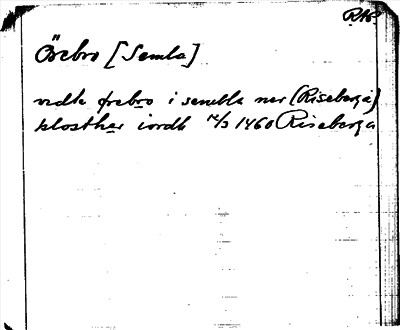 RAP
Örebro [Semla]
vedh ørebro i sembla ner (Riseberga)
klosther iordh 14/3 1460 Riseberga